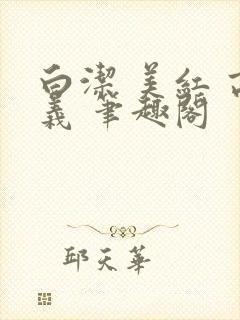 白潔 美紅 高
義 筆趣閣
邱天華